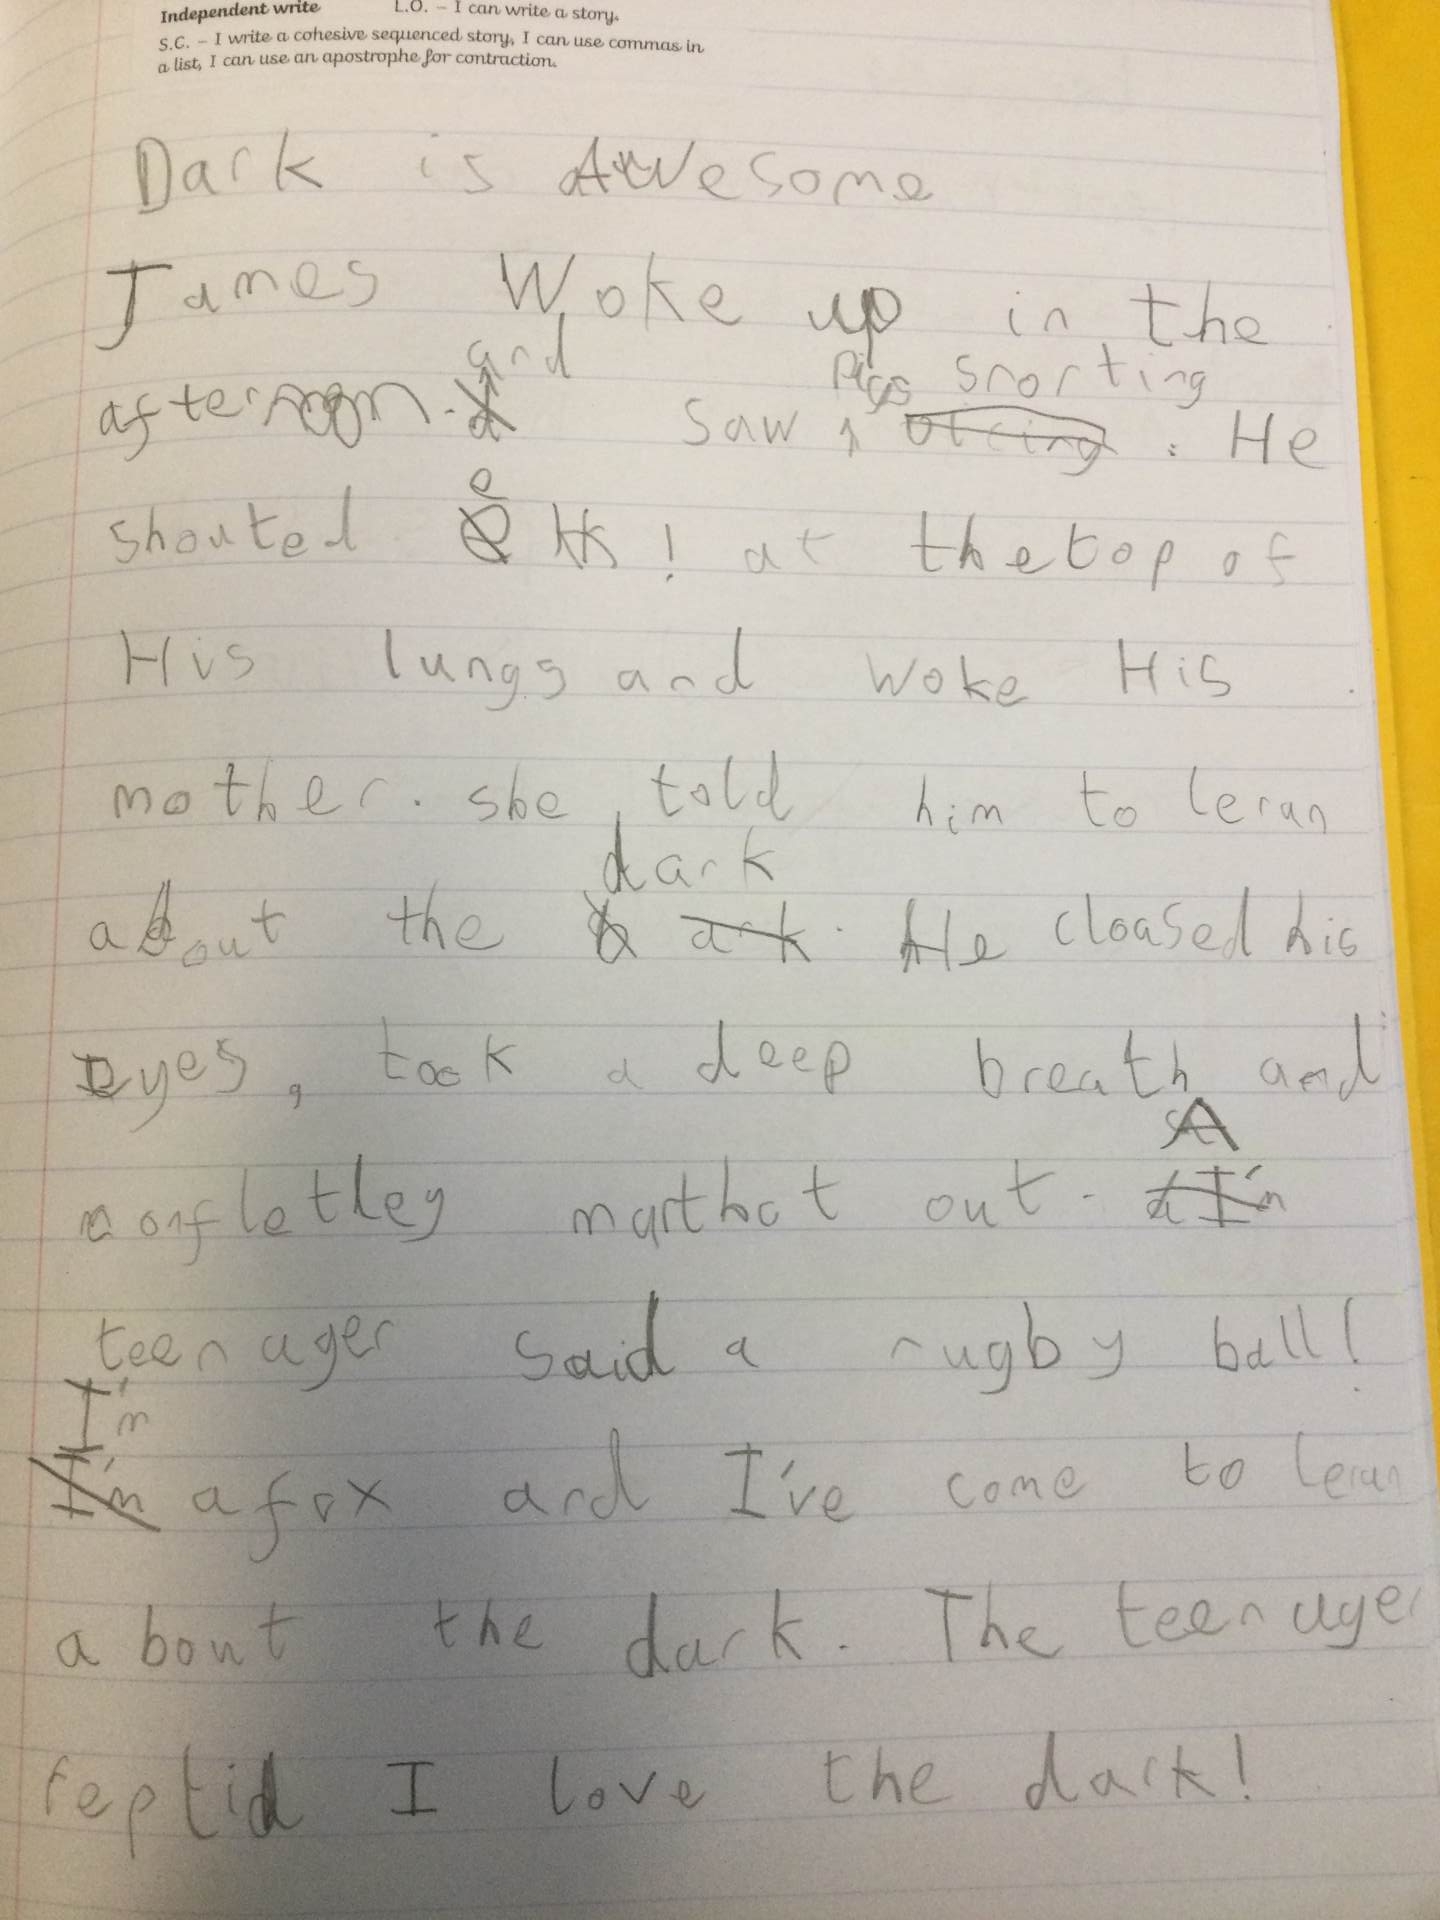 Independent write L.O. – I can write a story.
S.C. – I write a cohesive sequenced story, I can use commas in
a list, I can use an apostrophe for contraction.
Dark is Awesome
James Woke up in the
and
afternoon. saw pigs snorting . He
shouted ekk! at the top of
His lungs and woke His
mother. she told him to leran
dark
about the . He cloased his
eyes, took a deep breath and
A
out.
teenager said a rugby ball!
I'm
a fox and I've come to leran
about the dark. The teenager
reptid I love the dark!